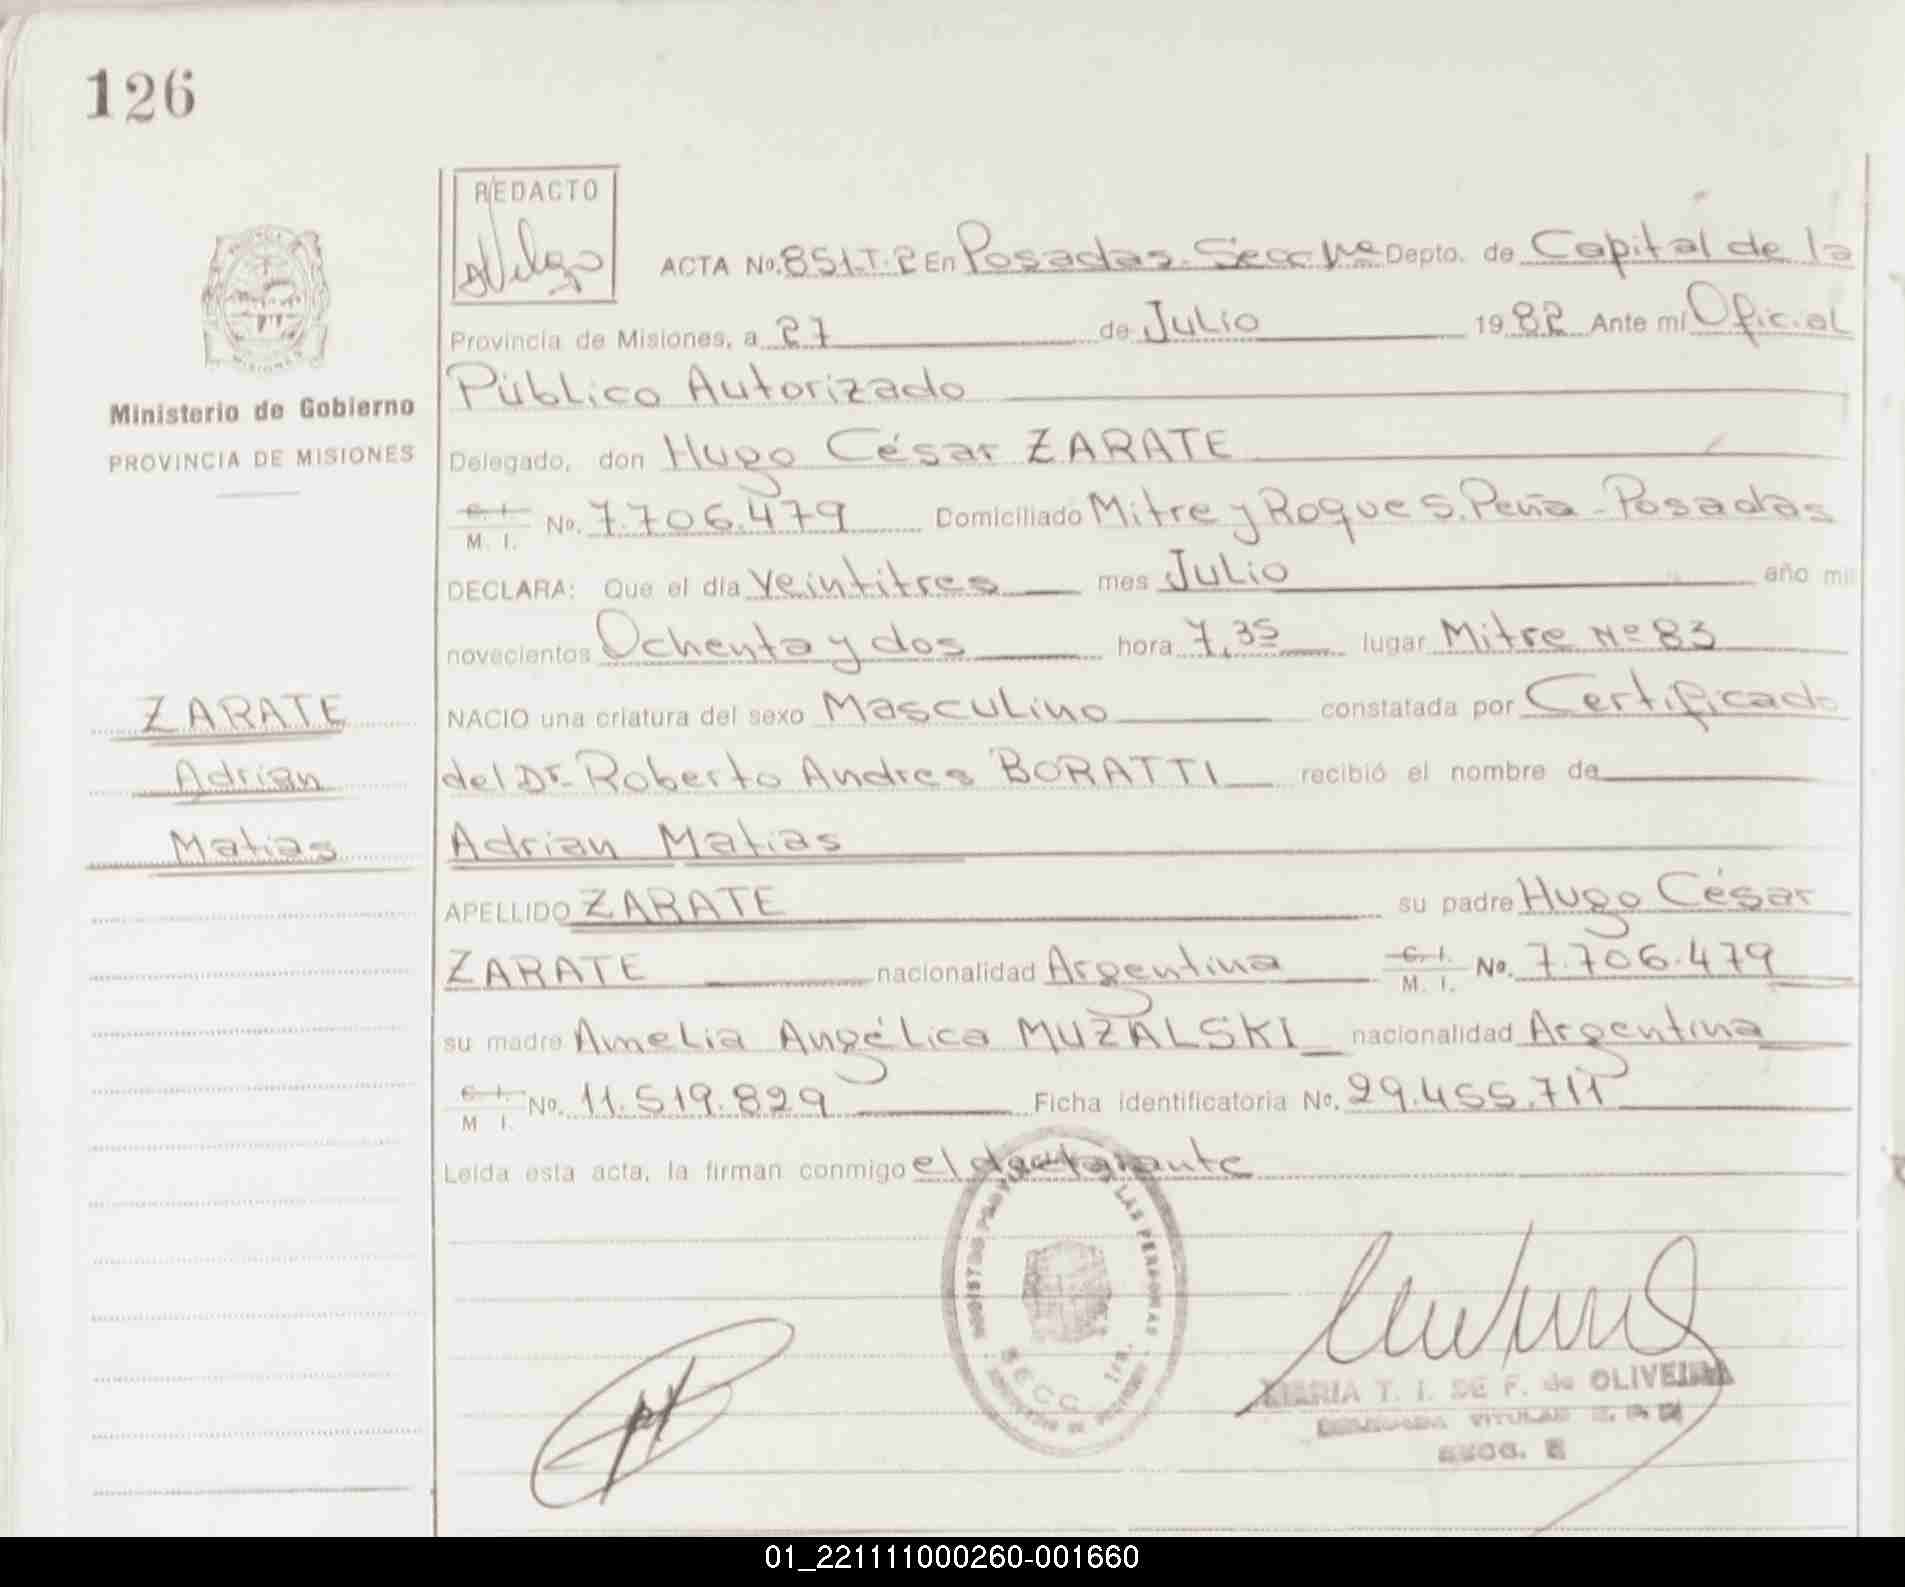 126
REDACTO
ACTA No. 851.T.2 En Posadas. Secc 1ª Depto. de Capital de la
Provincia de Misiones, a 27 de Julio 1982 Ante mí Oficial
Público Autorizado
Ministerio de Gobierno
PROVINCIA DE MISIONES
Delegado, don Hugo César ZARATE
C. I. M. I. No. 7.706.479 Domiciliado Mitre y Roque S. Peña - Posadas
DECLARA: Que el día Veintitres mes Julio año mil
novecientos Ochenta y dos hora 7,35 lugar Mitre Nº 83
ZARATE
Adrian
Matias
NACIO una criatura del sexo Masculino constatada por Certificado
del Dr. Roberto Andres BORATTI recibió el nombre de
Adrian Matias
APELLIDO ZARATE su padre Hugo César
ZARATE nacionalidad Argentina C. I. M. I. No. 7.706.479
su madre Amelia Angélica MUZALSKI nacionalidad Argentina
C. I. M I. No. 11.519.829 Ficha identificatoria No. 29.455.711
Leída esta acta, la firman conmigo el declarante
LAS PERSONAS
SECC. 1ra.
MARIA T. I. DE F. de OLIVEIRA
TITULAR
01_221111000260-001660